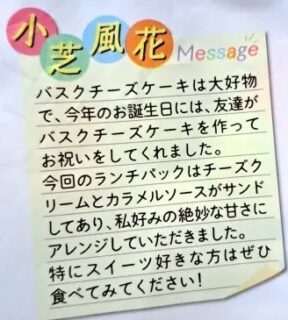 小芝風花 Message
バスクチーズケーキは大好物
で、今年のお誕生日には、友達が
バスクチーズケーキを作って
お祝いをしてくれました。
今回のランチパックはチーズク
リームとカラメルソースがサンド
してあり、私好みの絶妙な甘さに
アレンジしていただきました。
特にスイーツ好きな方はぜひ
食べてみてください!